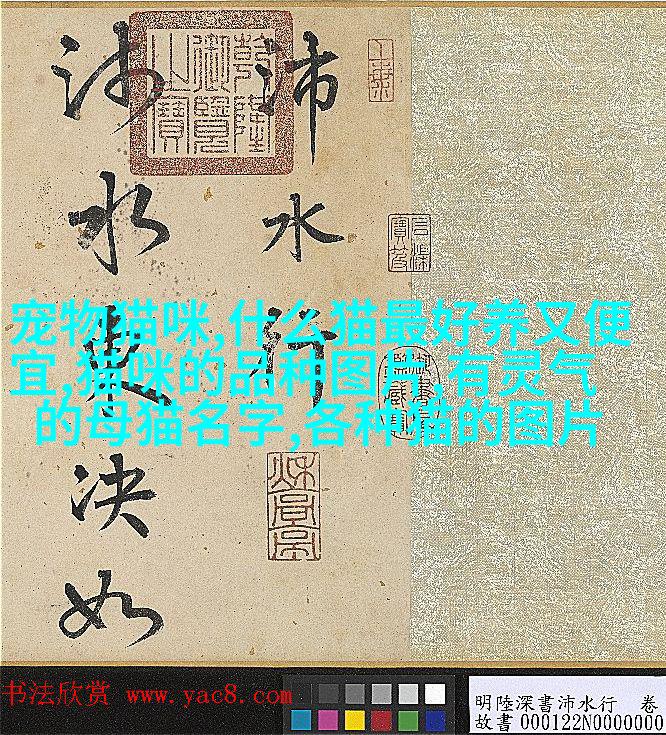 沛水行
沛水
決如
乾隆御覽之寶
宠物猫咪,什么猫最好养又便
宜,猫咪的品种图片,有灵气
的母猫名字,各种猫的图片
书法欣赏 www.yac8.com
明陸深書沛水行 卷
故書000122N0000000